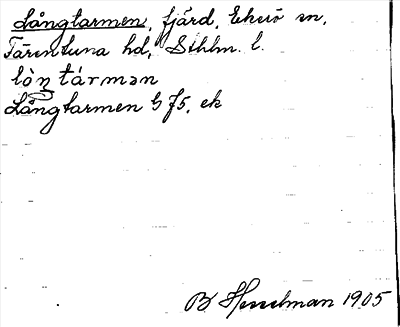 Långtarmen, fjärd, Ekerö sn,
Färentuna hd, Sthlm. l.
lòŋtármən
Långtarmen G J5, ek
B Hesselman 1905